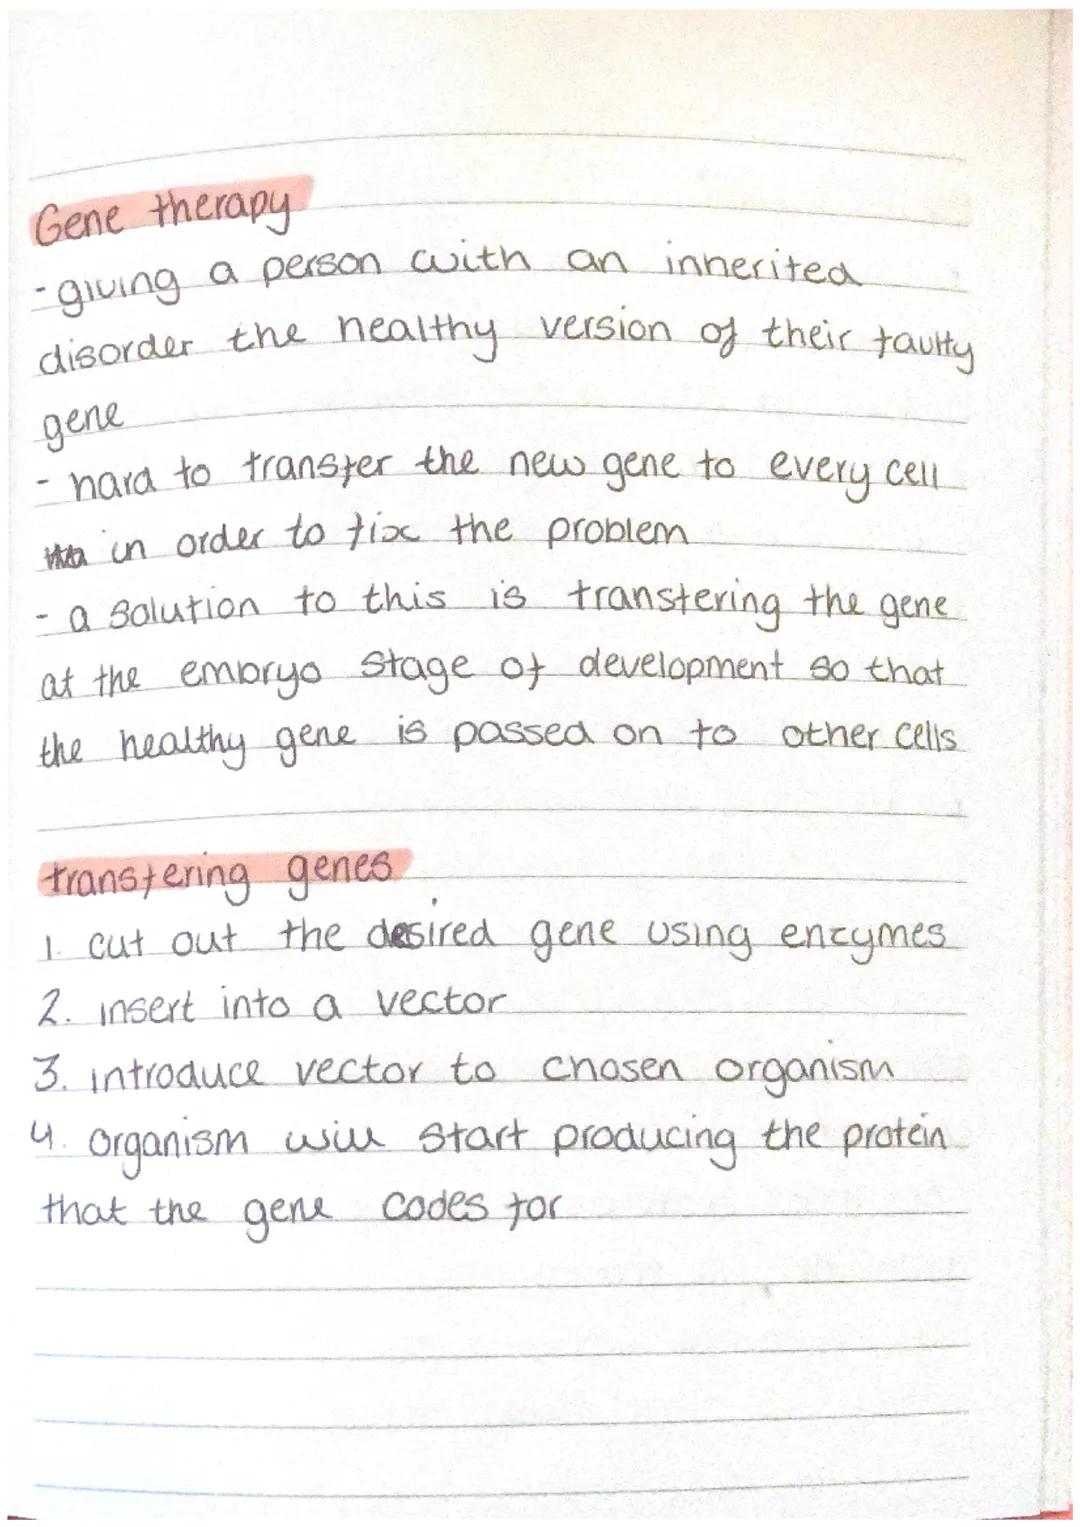 Gene therapy
- giving a person with an inherited
disorder the healthy version of their faulty
gene
- hard to transfer the new gene to every cell
in order to fix the problem
- a solution to this is transfering the gene
at the embryo stage of development so that
the healthy gene is passed on to other cells
transfering genes
1. cut out the desired gene using enzymes
2. insert into a vector
3. introduce vector to chosen organism
4. organism will start producing the protein
that the gene codes for